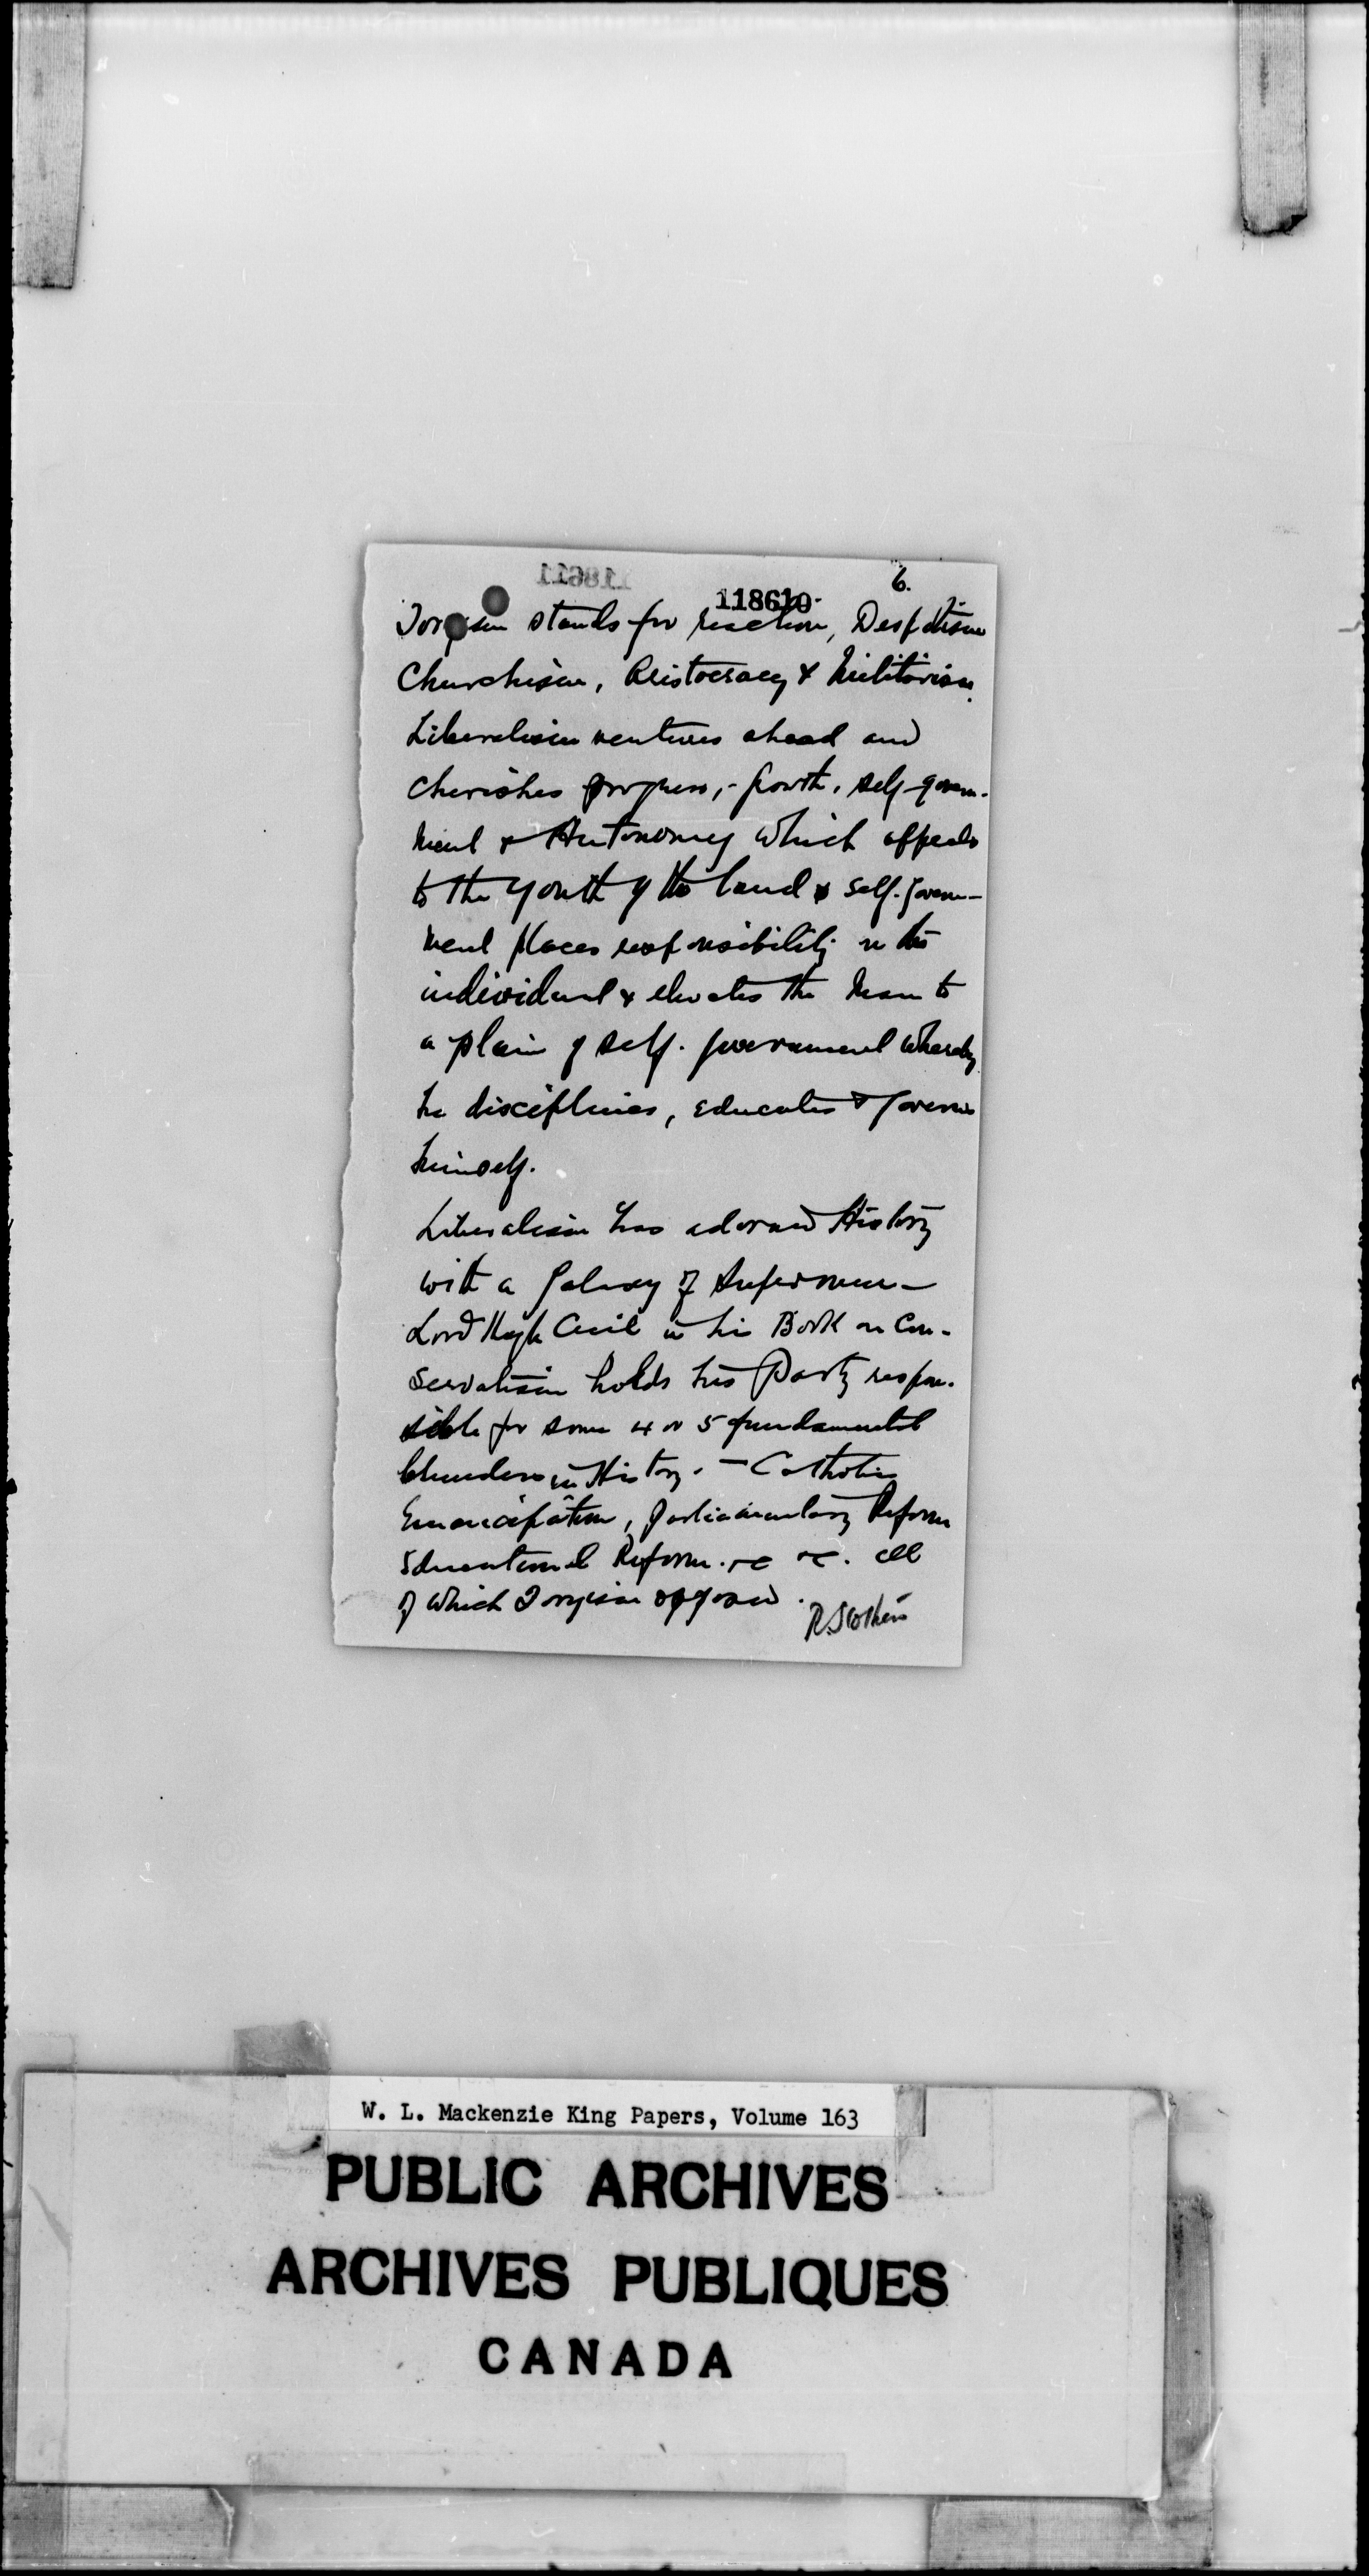 6.
118610
Toryism stands for reaction, Despotism
Churchism, Aristocracy & Militarism.
Liberalism ventures ahead and
cherishes progress, - growth, self-govern-
ment & Autonomy which appeals
to the youth of the land & self-govern-
ment places responsibility on the
individual & elevates the man to
a plain of self-government whereby
he disciplines, educates & governs
himself.
Liberalism has adorned History
with a Galaxy of Supermen -
Lord Hugh Cecil in his Book on Con-
servatism holds his Party respon-
sible for some 4 or 5 fundamental
blunders in History. - Catholic
Emancipation, Parliamentary Reform
Educational Reform. &c &c. all
of which Toryism opposed.
W. L. Mackenzie King Papers, Volume 163
PUBLIC ARCHIVES
ARCHIVES PUBLIQUES
CANADA